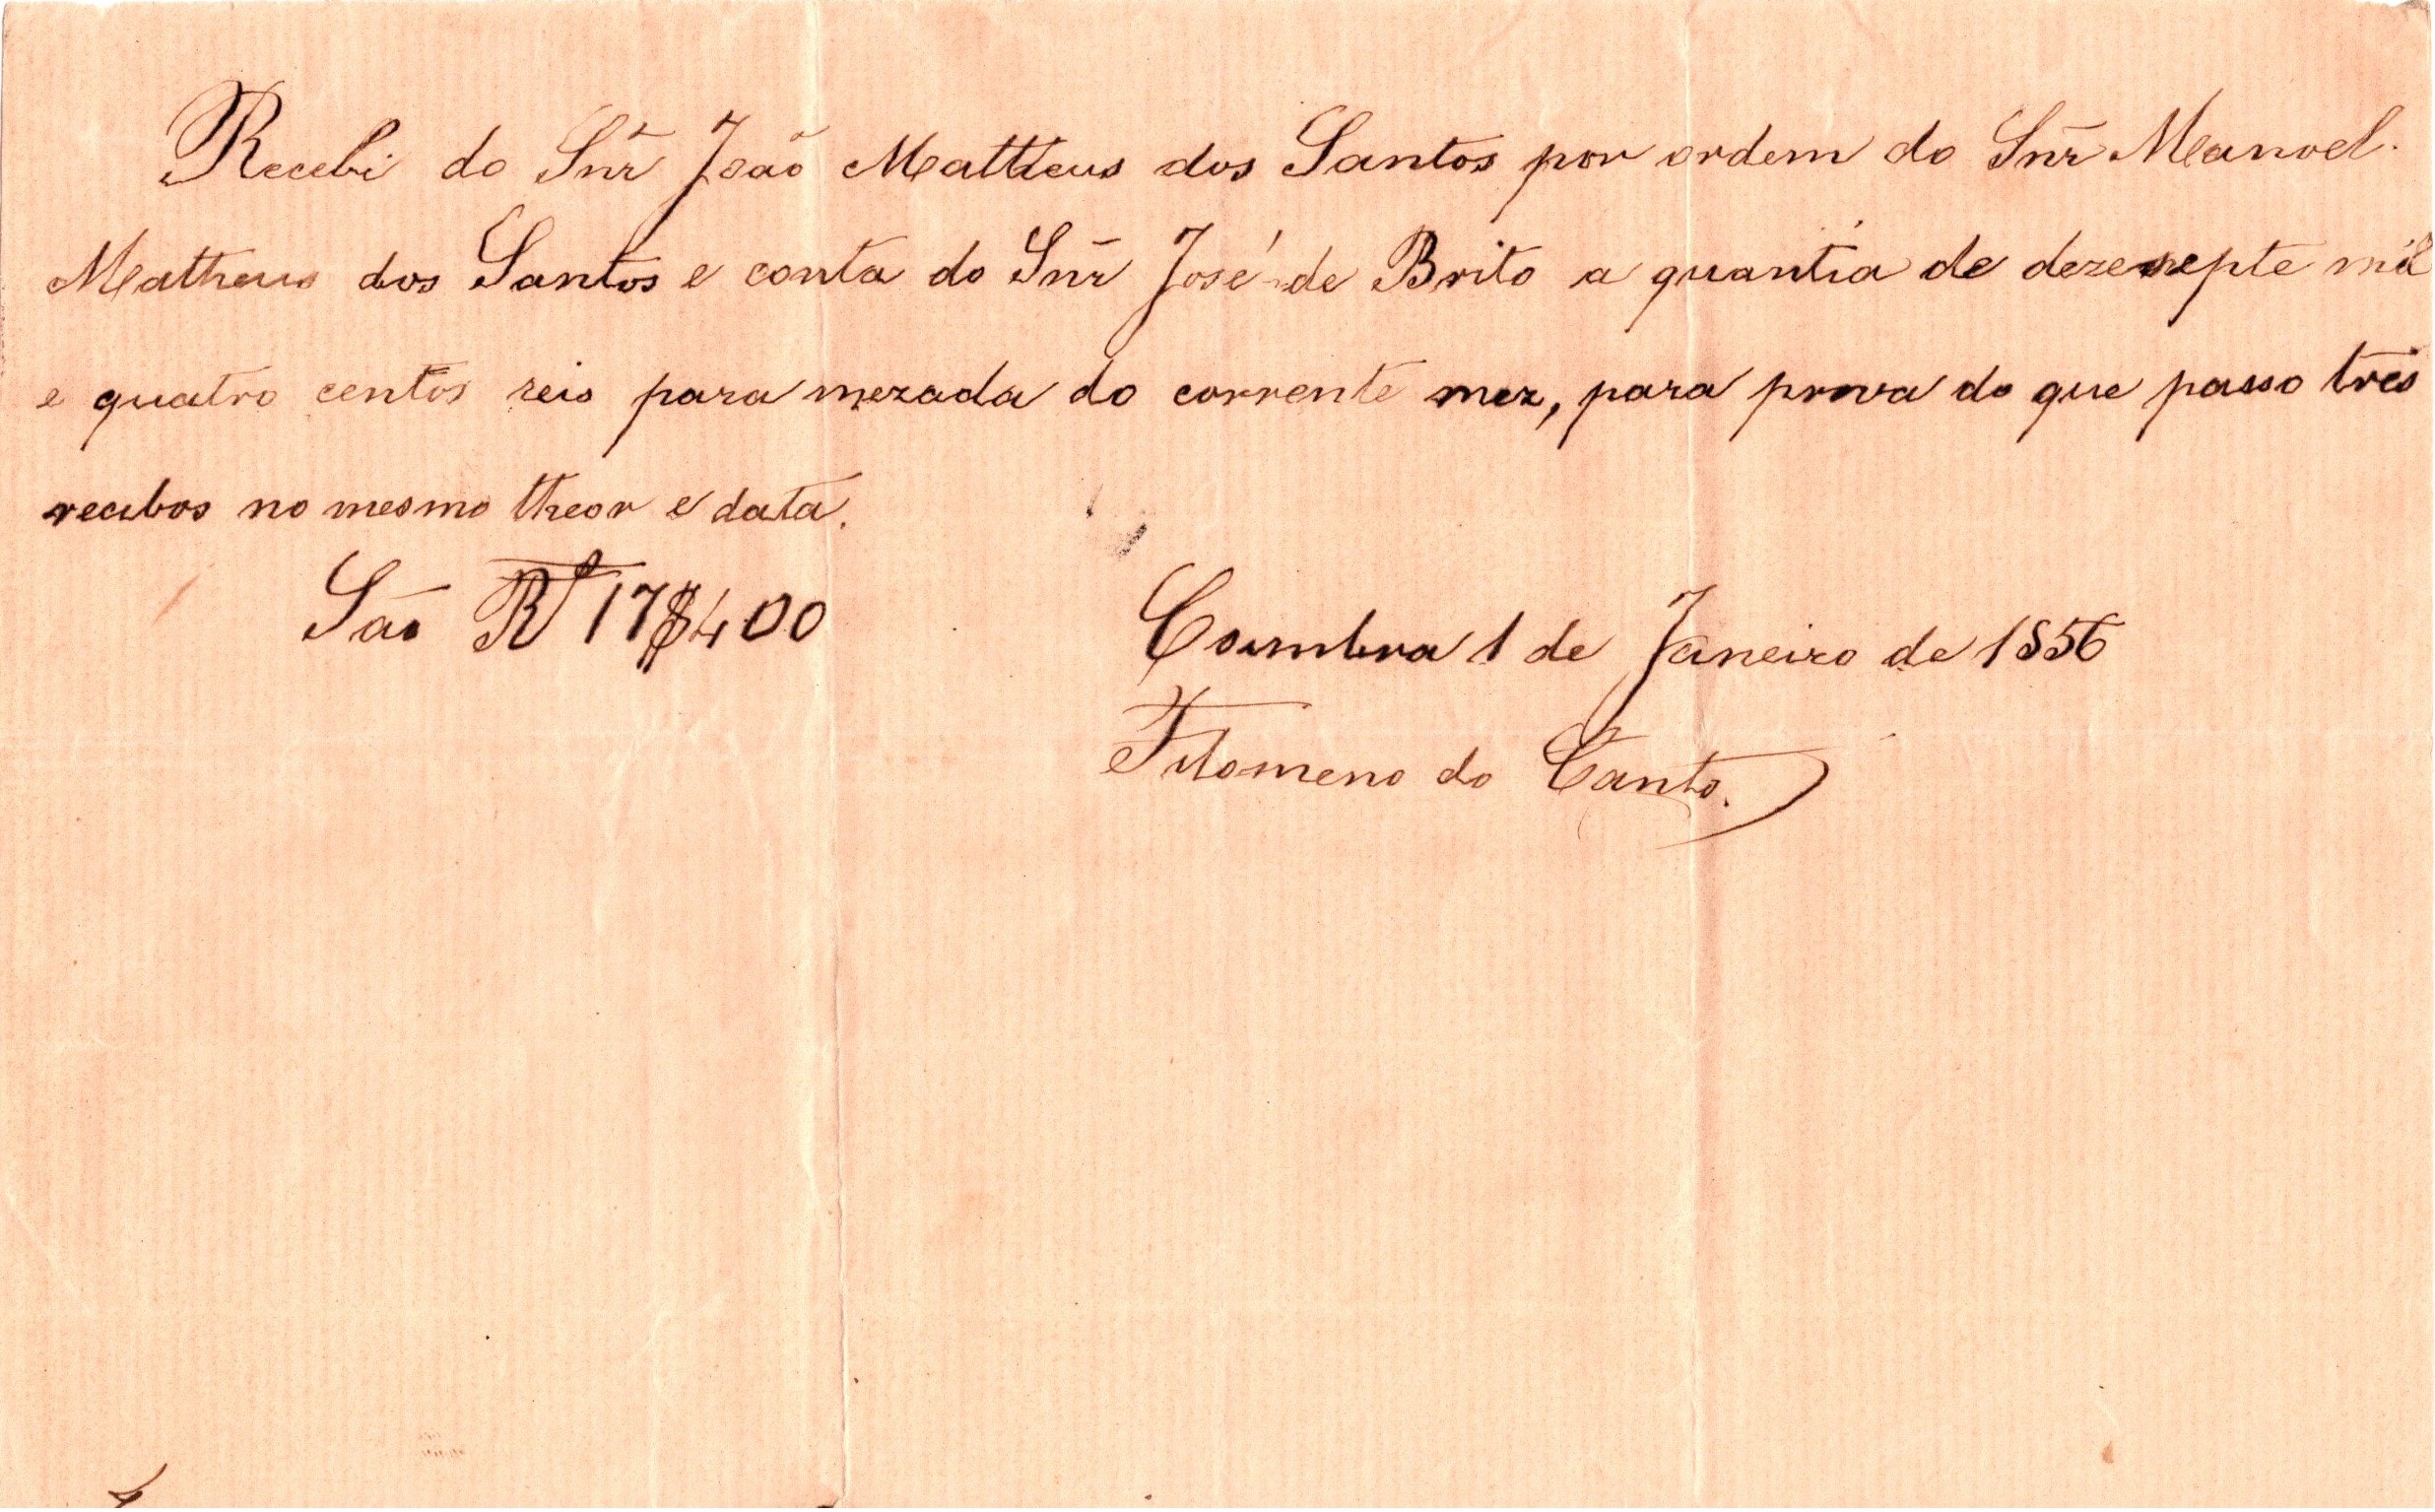 Recebi do Snr̃ João Mattheus dos Santos por ordem do Snr̃ Manoel.
Matheus dos Santos e conta do Snr̃ José de Brito a quantia de dezesepte mil
e quatro centos reis para mezada do corrente mez, para prova do que passo tres
recibos no mesmo theor e data.
São Rs 17$400
Coimbra 1 de Janeiro de 1856
Filomeno do Canto.